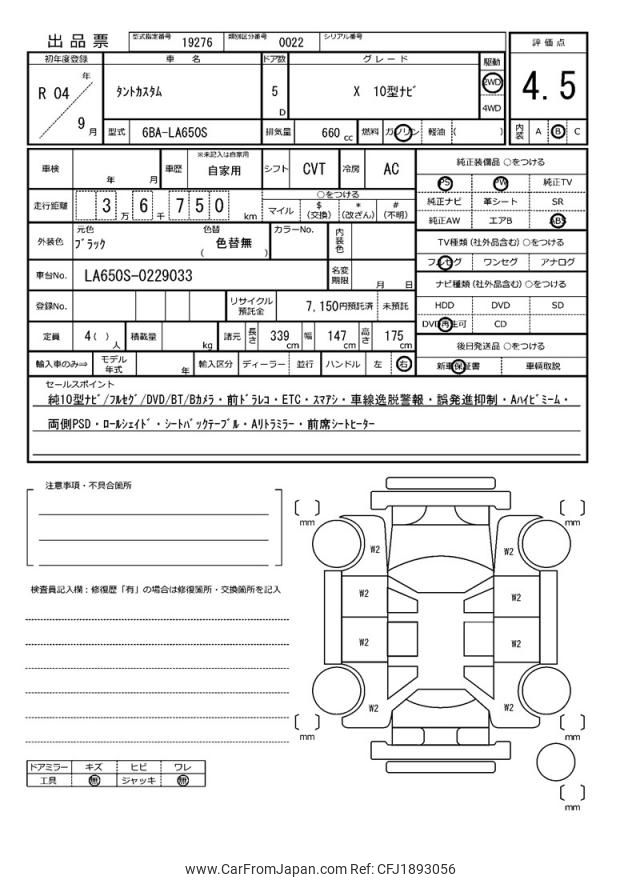 出品票 型式指定番号 19276 類別区分番号 0022 シリアル番号
評価点
4.5
内装 A B C
初年度登録 車名 ドア数 グレード 駆動
R 04 年 9 月
ﾀﾝﾄｶｽﾀﾑ 5 D X 10型ﾅﾋﾞ 2WD 4WD
型式 6BA-LA650S 排気量 660 cc 燃料 ガソリン 軽油 ( )
車検 年 月 車歴 ※未記入は自家用 自家用 シフト CVT 冷房 AC
走行距離 3 万 6 千 7 5 0 km
○をつける
マイル $ (交換) * (改ざん) # (不明)
外装色 元色 ﾌﾞﾗｯｸ 色替 ( 色替無 ) カラーNo. 内装色
車台No. LA650S-0229033 名変期限 月 日
登録No. リサイクル預託金 7,150円預託済 未預託
定員 4 ( ) 人 積載量 kg 諸元 長さ 339 cm 幅 147 cm 高さ 175 cm
輸入車のみ⇒ モデル年式 年 輸入区分 ディーラー 並行 ハンドル 左 右
純正装備品 ○をつける
PS PW 純正TV
純正ナビ 革シート SR
純正AW エアB ABS
TV種類 (社外品含む) ○をつける
フルセグ ワンセグ アナログ
ナビ種類 (社外品含む) ○をつける
HDD DVD SD
DVD再生可 CD
後日発送品 ○をつける
新車保証書 車輌取説
セールスポイント
純10型ﾅﾋﾞ/ﾌﾙｾｸﾞ/DVD/BT/Bｶﾒﾗ・前ﾄﾞﾗﾚｺ・ETC・ｽﾏｱｼ・車線逸脱警報・誤発進抑制・Aﾊｲﾋﾞｰﾑ・
両側PSD・ﾛｰﾙｼｪｲﾄﾞ・ｼｰﾄﾊﾞｯｸﾃｰﾌﾞﾙ・Aﾘﾄﾗﾐﾗｰ・前席ｼｰﾄﾋｰﾀｰ
注意事項・不具合箇所
検査員記入欄：修復歴「有」の場合は修復箇所・交換箇所を記入
ドアミラー キズ ヒビ ワレ
工具 無 ジャッキ 無
[ ] mm [ ] mm
W2 W2
W2 W2
W2 W2
W2 W2
[ ] mm [ ] mm
[ ] mm
www.CarFromJapan.com Ref: CFJ1893056